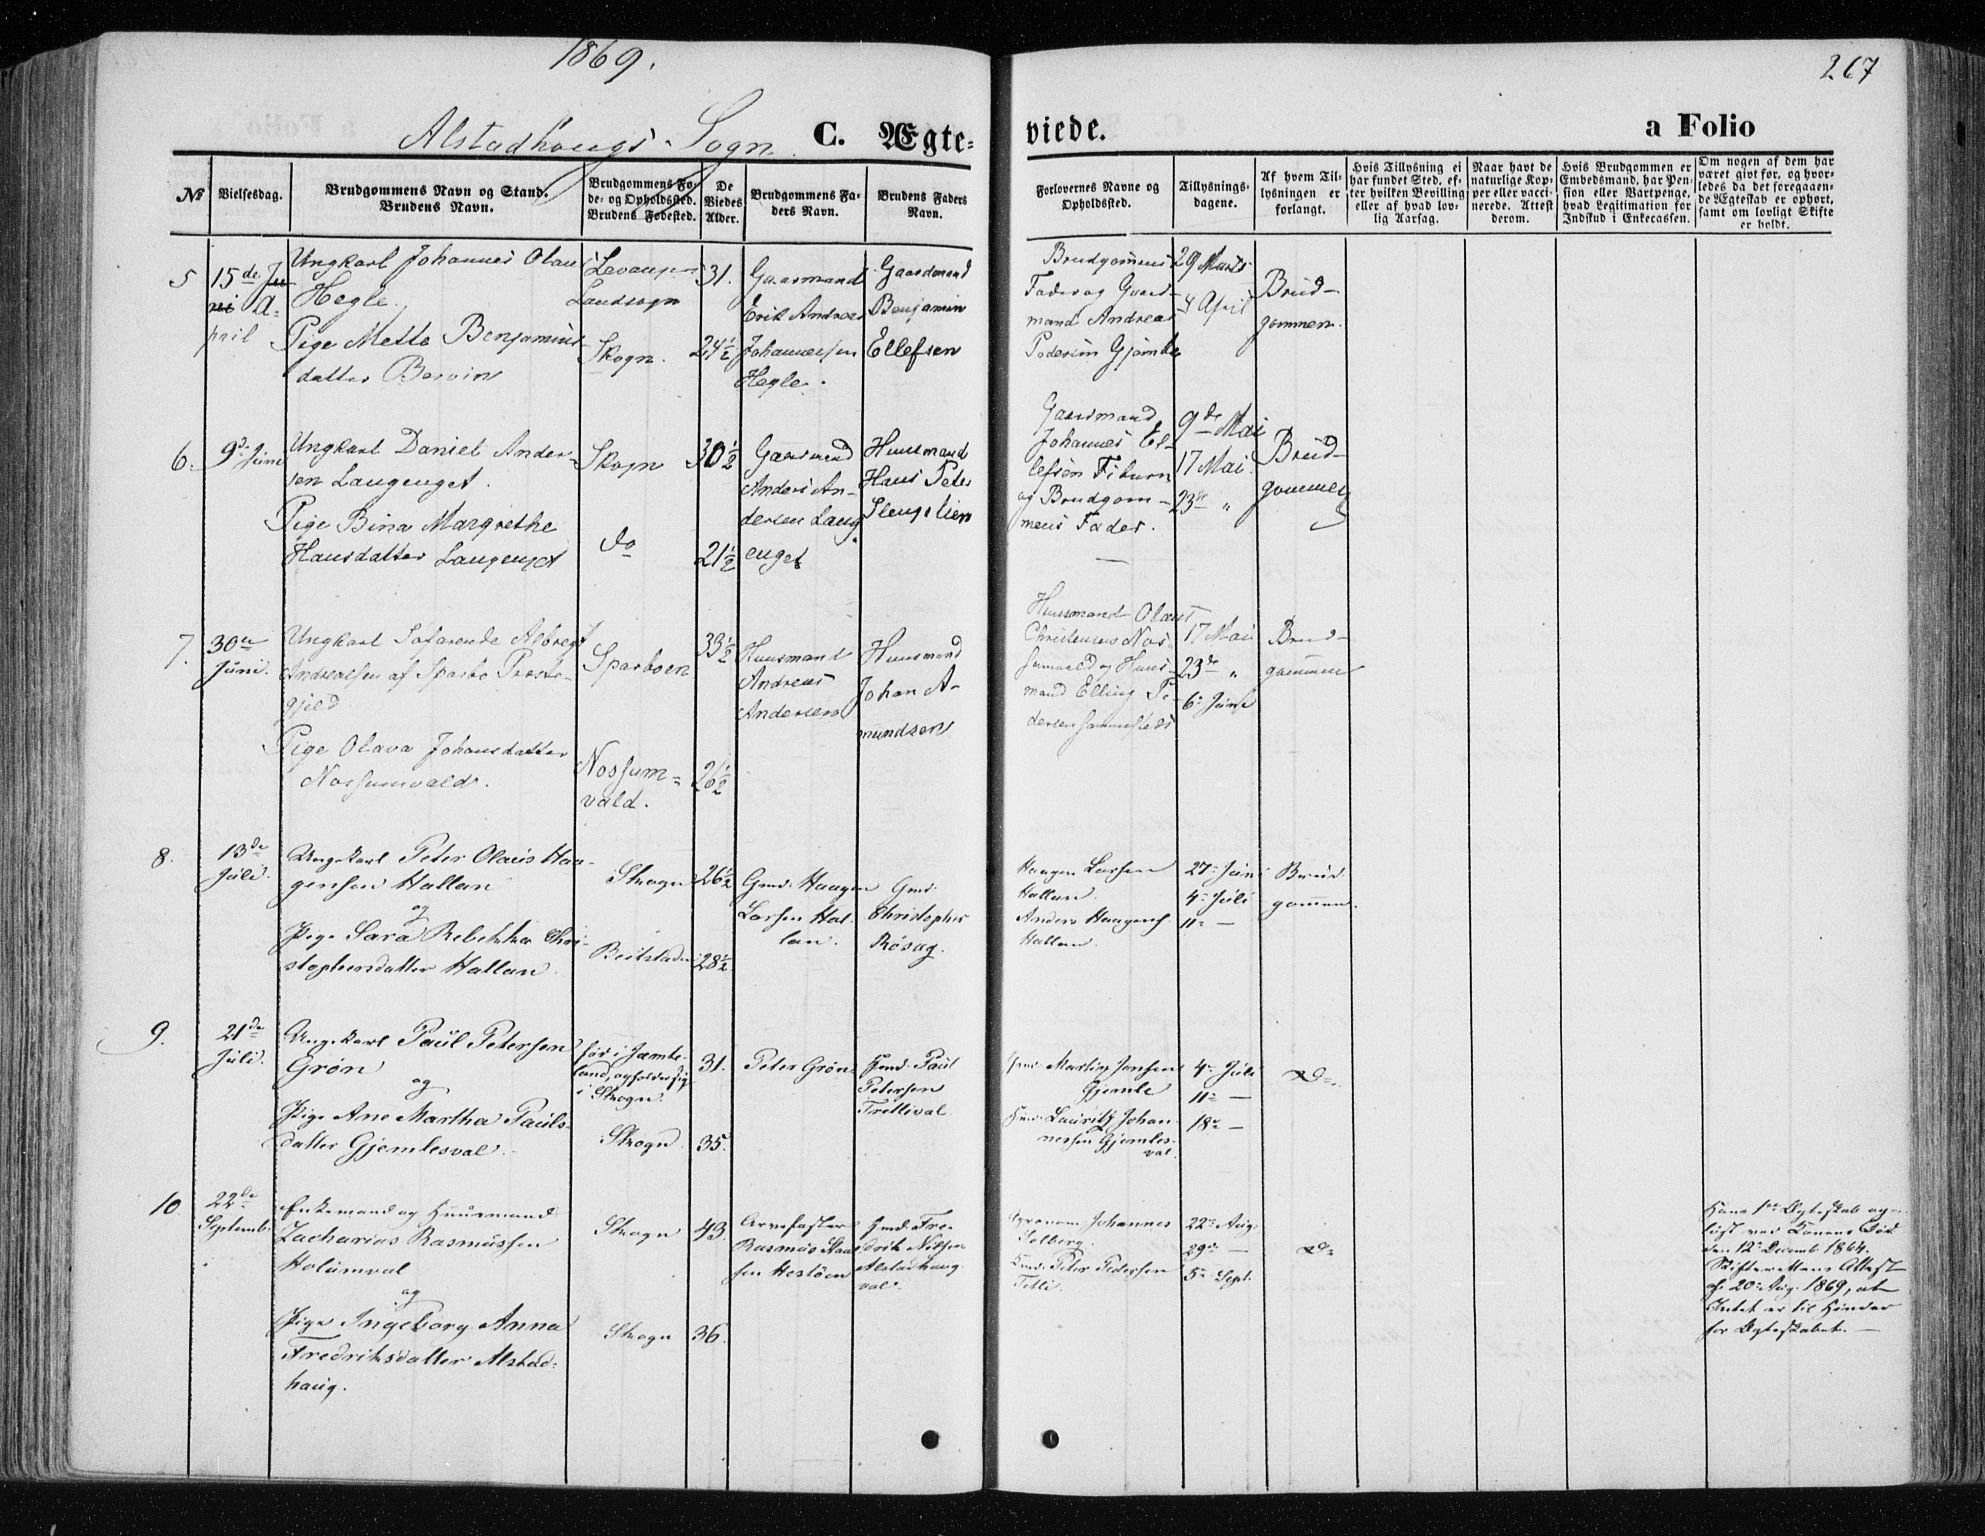 1869.
267
Alstadhougs Sogn. C. Ægte=
viede.
a Folio
№
Vielsesdag.
Brudgommens Navn og Stand.
Brudens Navn.
Brudgommens Fo-
de- og Opholdssted.
Brudens Fødested.
De
Viedes
Alder.
Brudgommens Fa-
ders Navn.
Brudens Faders
Navn.
Forlovernes Navne og
Opholdssted.
Tillysnings-
dagene.
Af hvem Til-
lysningen er
forlangt.
Hvis Tillysning ei
har fundet Sted, ef-
ter hvilken Bevilling
eller af hvad lov-
lig Aarsag.
Naar havt de
naturlige Kop-
per eller vacci-
nerede. Attest
derom.
Hvis Brudgommen er
Embedsmand, har Pen-
sion eller Vartpenge,
hvad Legitimation for
Indskud i Enkecassen.
Om nogen af dem har
været givt før, og hvor-
ledes da det foregaaen-
de Ægteskab er ophørt,
samt om lovligt Skifte
er holdt.
5
15de Ju
ni A-
pril
Ungkarl Johannes Olau
Hegle.
Pige Mette Benjamins
datter Borvin
Levanger
Landsogn
Skogn.
31.
24½
Gaardmand
Erik Andreas
Johannessen
Hegle.
Gaardmand
Benjamin
Ellefsen
Brudgommens
Fader og Gaard-
mand Andreas
Pedersen Gjemble
29 Marts
4 April
Brud-
gommen.
6.
9de Juni
Ungkarl Daniel Ander-
sen Langenget.
Pige Bina Margrethe
Hansdatter Langenget
Skogn
do
30½
21½
Gaardmand
Anders An-
dersen Lang
enget
Huusmand
Hans Peter
Slengslien
Gaardmand
Johannes El-
lefsen Fiburn
og Brudgom-
mens Fader.
9de Mai
17 Mai
23de "
Brud-
gommen
7.
30te
Juni.
Ungkarl Søfarende Albregt
Andreassen af Sparbo Præste-
gjeld
Pige Olava Johansdatter
Nossumvald.
Sparboen
Nossum=
vald.
33½
26½
Huusmand
Andreas
Andersen
Huusmand
Johan A-
mundsen
Huusmand Olaus
Christensen Nos-
sumvald og Huus-
mand Elling Pe-
dersen
17 Mai
23de "
6te Juni
Brud-
gommen
8.
13de
Juli.
Ungekarl Peter Olaus Haa-
gensen Hallan
og
Pige Sara Rebekka Chri-
stophersdatter Hallan
Skogn
Beitstaden
26½
28½
Gmd. Haagen
Larsen Hal-
lan.
Gmd.
Christopher
Røsag.
Haagen Larsen
Hallan.
Anders Haagens.
Hallan.
27de Juni
4de Juli
11te —
Brud-
gommen.
9.
21de
Juli.
Ungekarl Paul Petersen
Grøn
og
Pige Ane Martha Pauls-
datter Gjemlesval.
før i Jæmte-
land, opholder sig
i Skogn.
Skogn.
31.
35.
Peter Grøn
Hmd. Paul
Petersen
Trettival
Hmd. Martin Jensen
Gjemle
Hmd. Lauritz Johan-
nessen Gjemles-
val.
4de Juli
11te —
18de —
do.
10
22de
Septemb.
Enkemand og Huusmand
Zacharias Rasmussen
Holumval
og
Pige Ingeborg Anna
Fredriksdatter Alstad-
haug.
Skogn
Skogn
43.
36.
Arvefæster
Rasmus
sen Hestøen
Hmd. Fre-
drik Nilsen
Alstadhaug-
val.
Agronom Johannes
Solberg.
Hmd. Peter Pedersen
Tetli.
22de Aug.
29de —
5te Sept.
do
Hans 1ste Ægteskab op-
løst ved Konens Død
den 12te Decemb. 1864.
Skifterettens Attest
af 20de Aug. 1869, at
Intet er til Hinder
for Ægteskabet. —